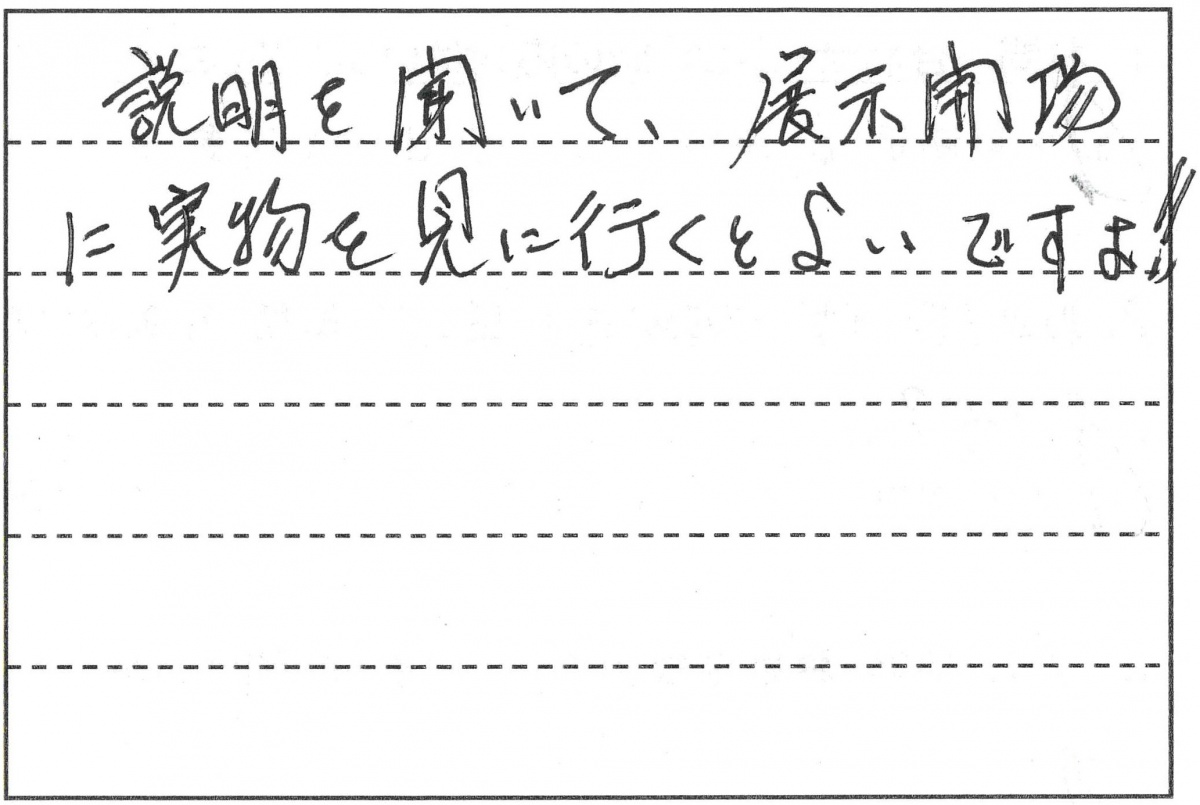 説明を聞いて、展示開場
に実物を見に行くとよいですよ!!